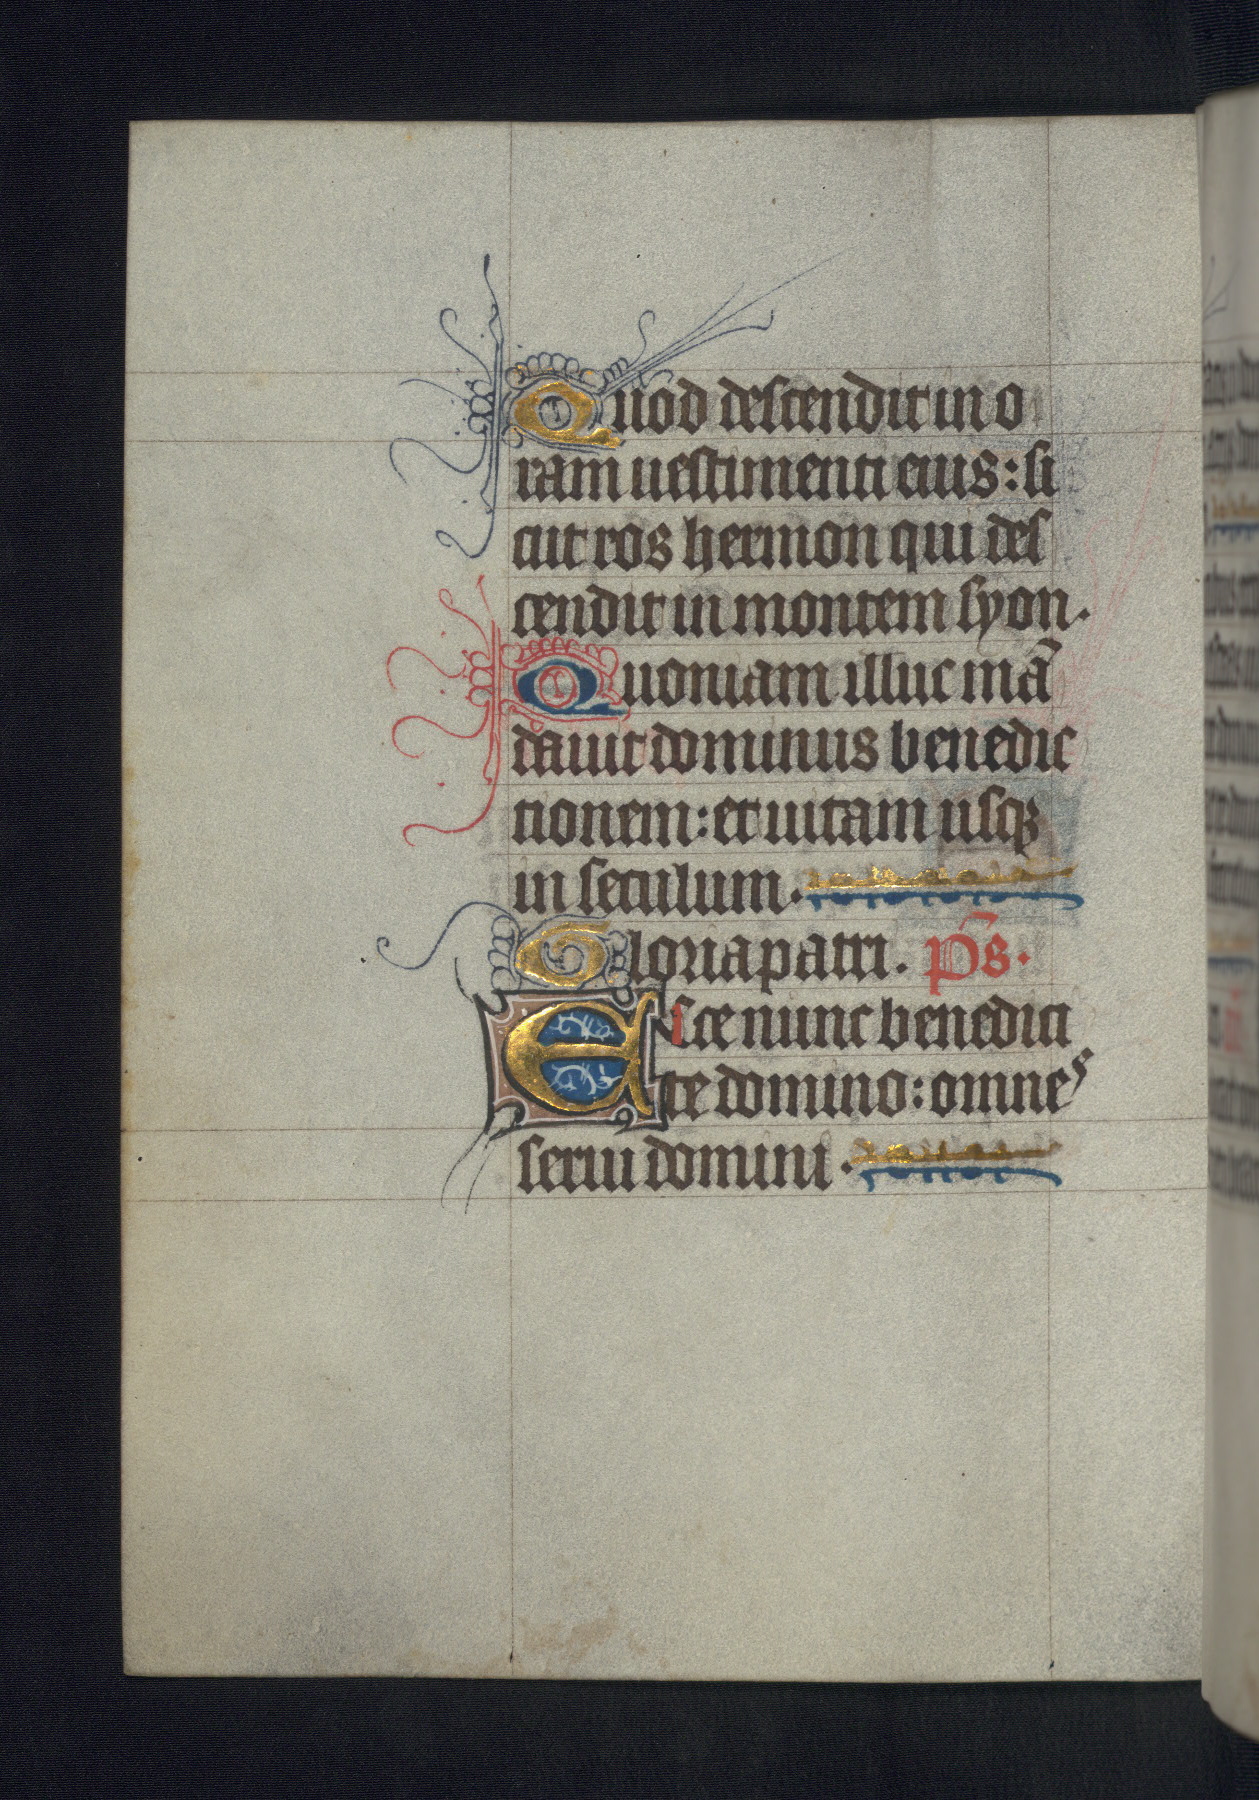 Quod descendit in o
ram uestimenti eius: si
cut ros hermon qui des
cendit in montem syon.
Quoniam illuc mā
dauit dominus benedic
tionem: et uitam usqꝫ
in seculum.
Gloria patri. p̄s.
Ecce nunc benedici
te domino: omnes
serui domini.